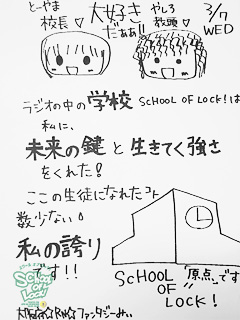 とーやま
校長♡
大好き
だぁぁ!!
やしろ
教頭♡
3/7
WED
ラジオの中の学校 SCHOOL OF LOCK!は
私に、
未来の鍵と生きてく強さ
をくれた!
ここの生徒になれたコト
数少ない
私の誇り
です!!
SCHOOL OF LOCK!
SCHOOL "原点"です
OF
LOCK!
ファンタジーみぃ